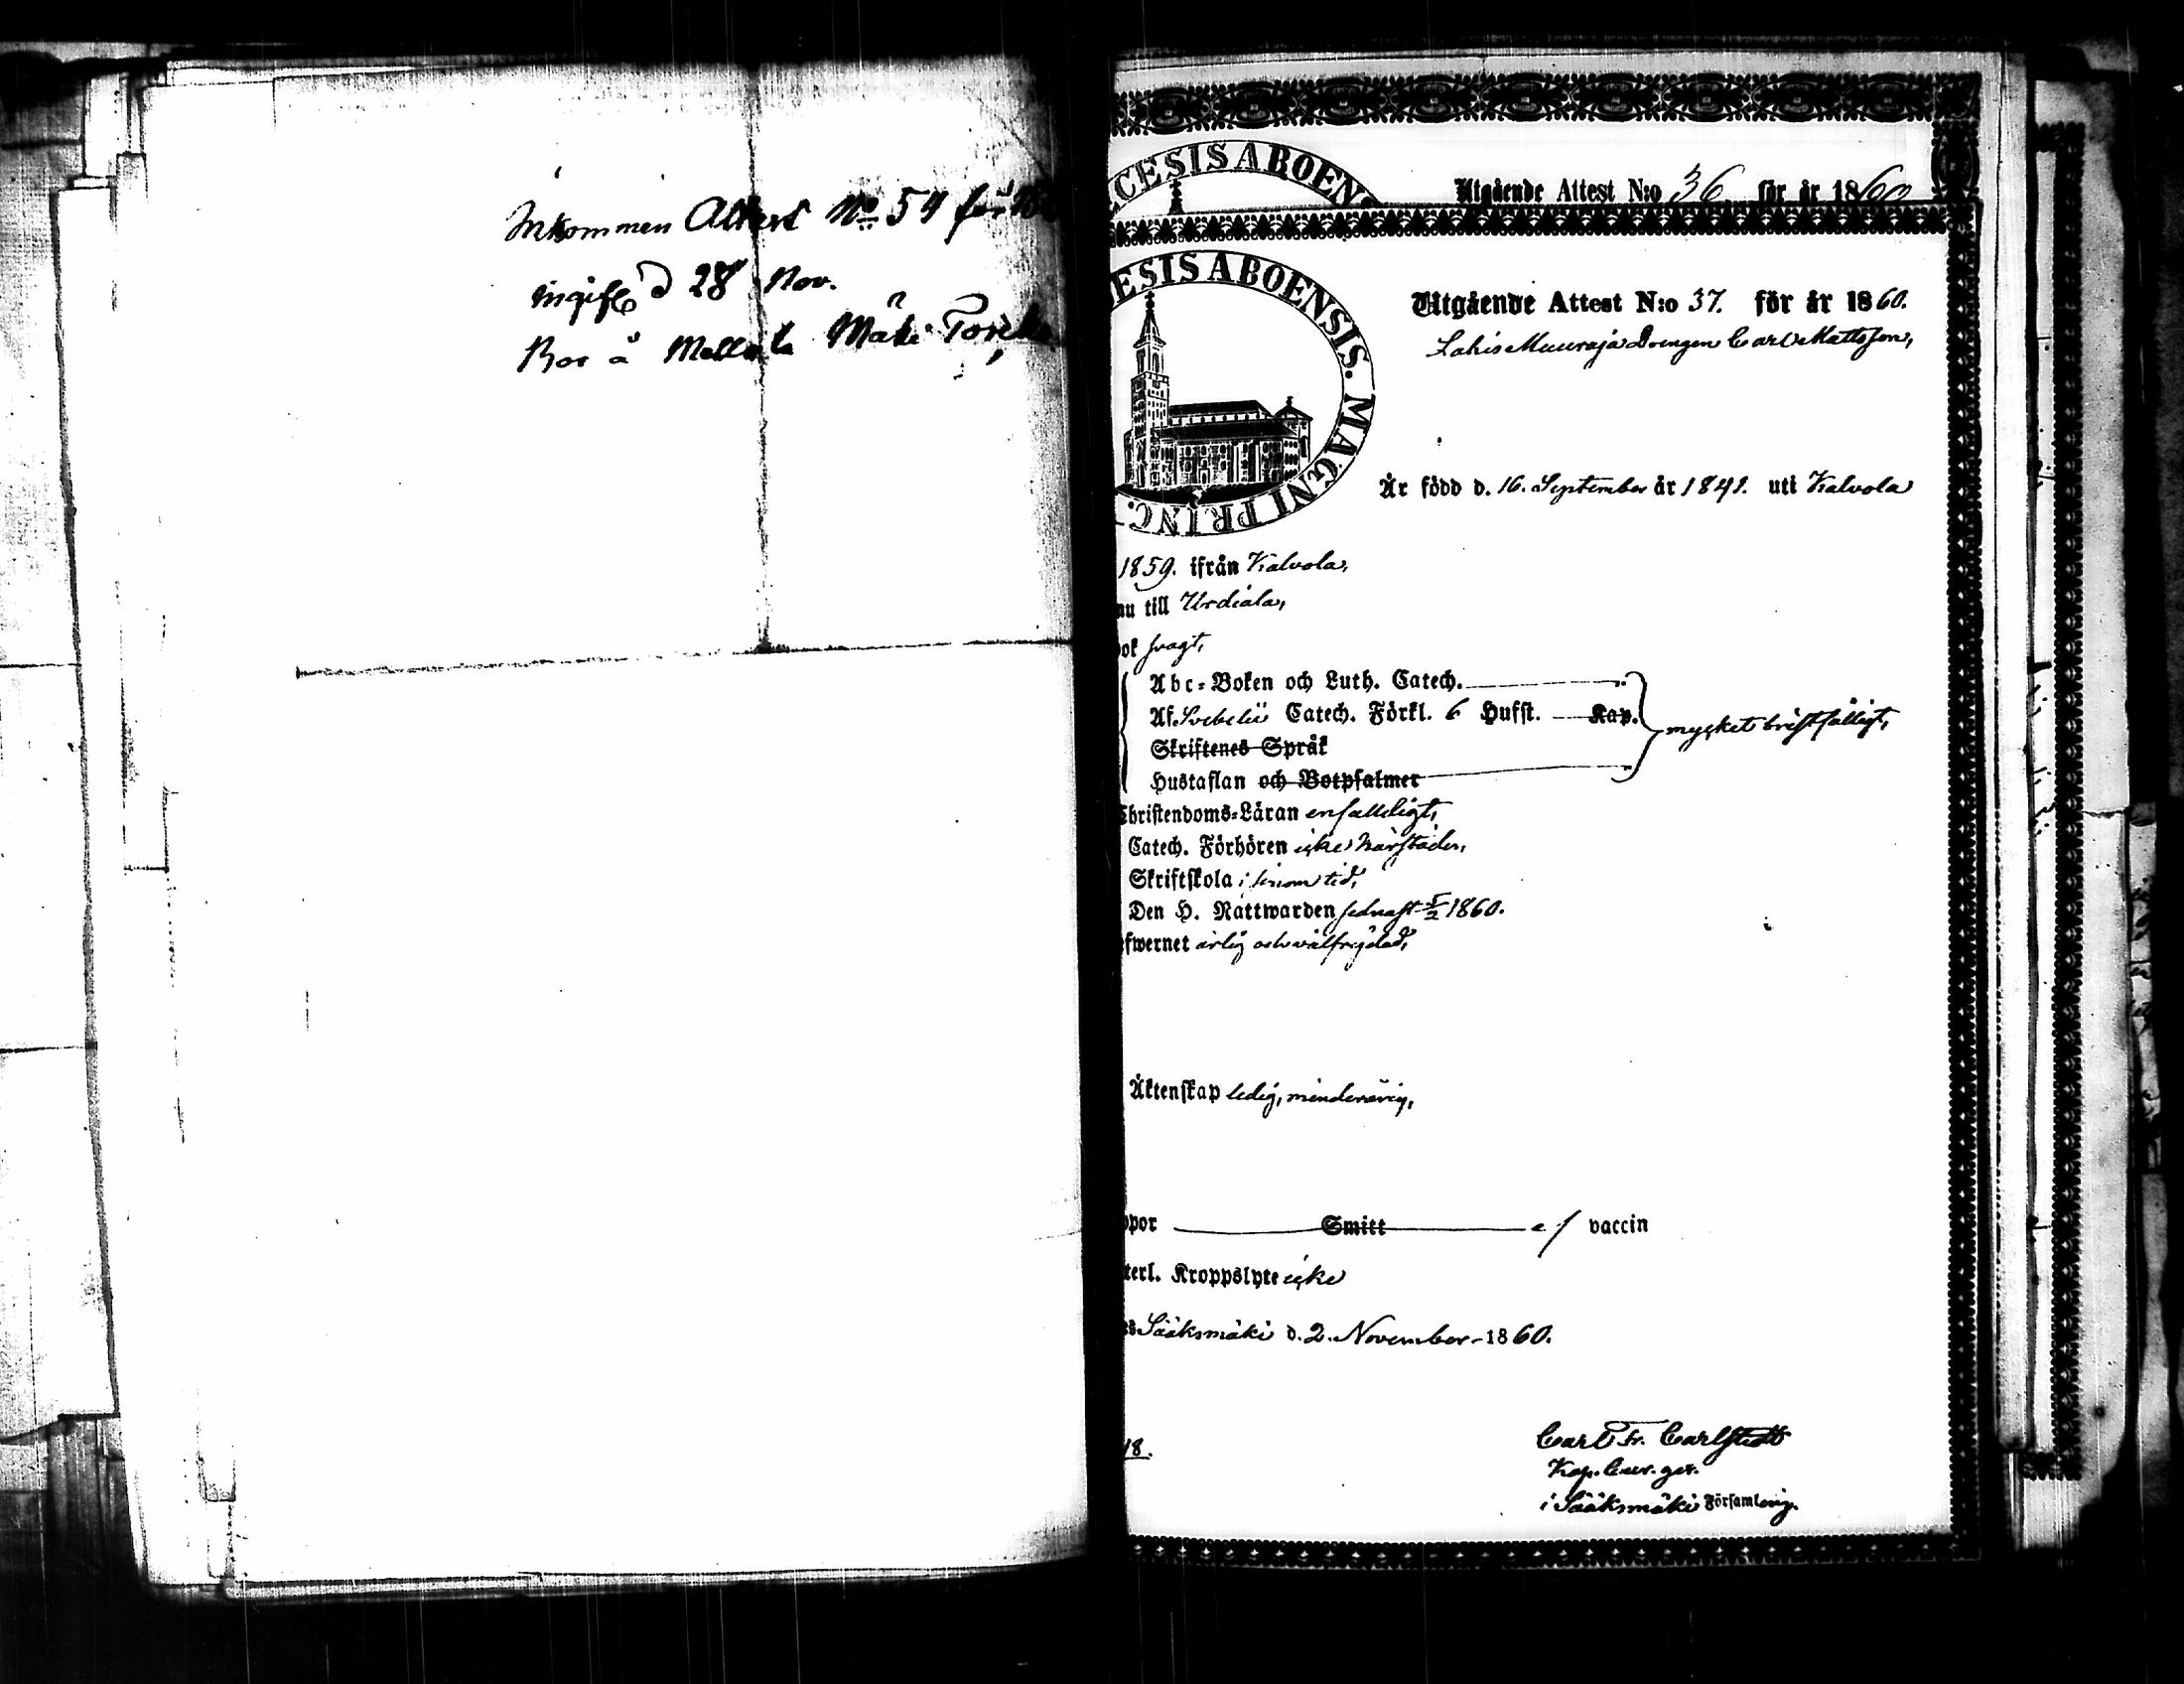 Inkommen Attest No 54 för
ingift d 28 Nov.
Bor å Mellola Mäki Torp
CESIS ABOEN
Utgående Attest N:o 36 för år 1860
ESIS ABOENSIS. MAGNI PRINC.
Utgående Attest N:o 37. för år 1860.
Lahis Muuraja Drengen Carl Mattsson,
Är född d. 16. September år 1841. uti Kalvola
1859. ifrån Kalvola,
nu till Urdiala,
ok svagt,
Abc-Boken och Luth. Catech.
Af Svebelii Catech. Förkl. 6 Hufst. Kap.
mycket bristfälligt,
Skriftenes Språk
Hustaflan och Botpsalmer
Christendoms-Läran enfalleligt,
Catech. Förhören icke härstädes,
Skriftskola i sinom tid,
Den H. Nattwarden sednast 5/2 1860.
fwernet ärlig och välfrejdad,
Äktenskap ledig, minderårig,
ppor Smitt ej vaccin
terl. Kroppslyte icke
Sääksmäki d. 2. November 1860.
18.
Carl Fr. Carlstedt
Kap. Cur. ger.
i Sääksmäki Församling.